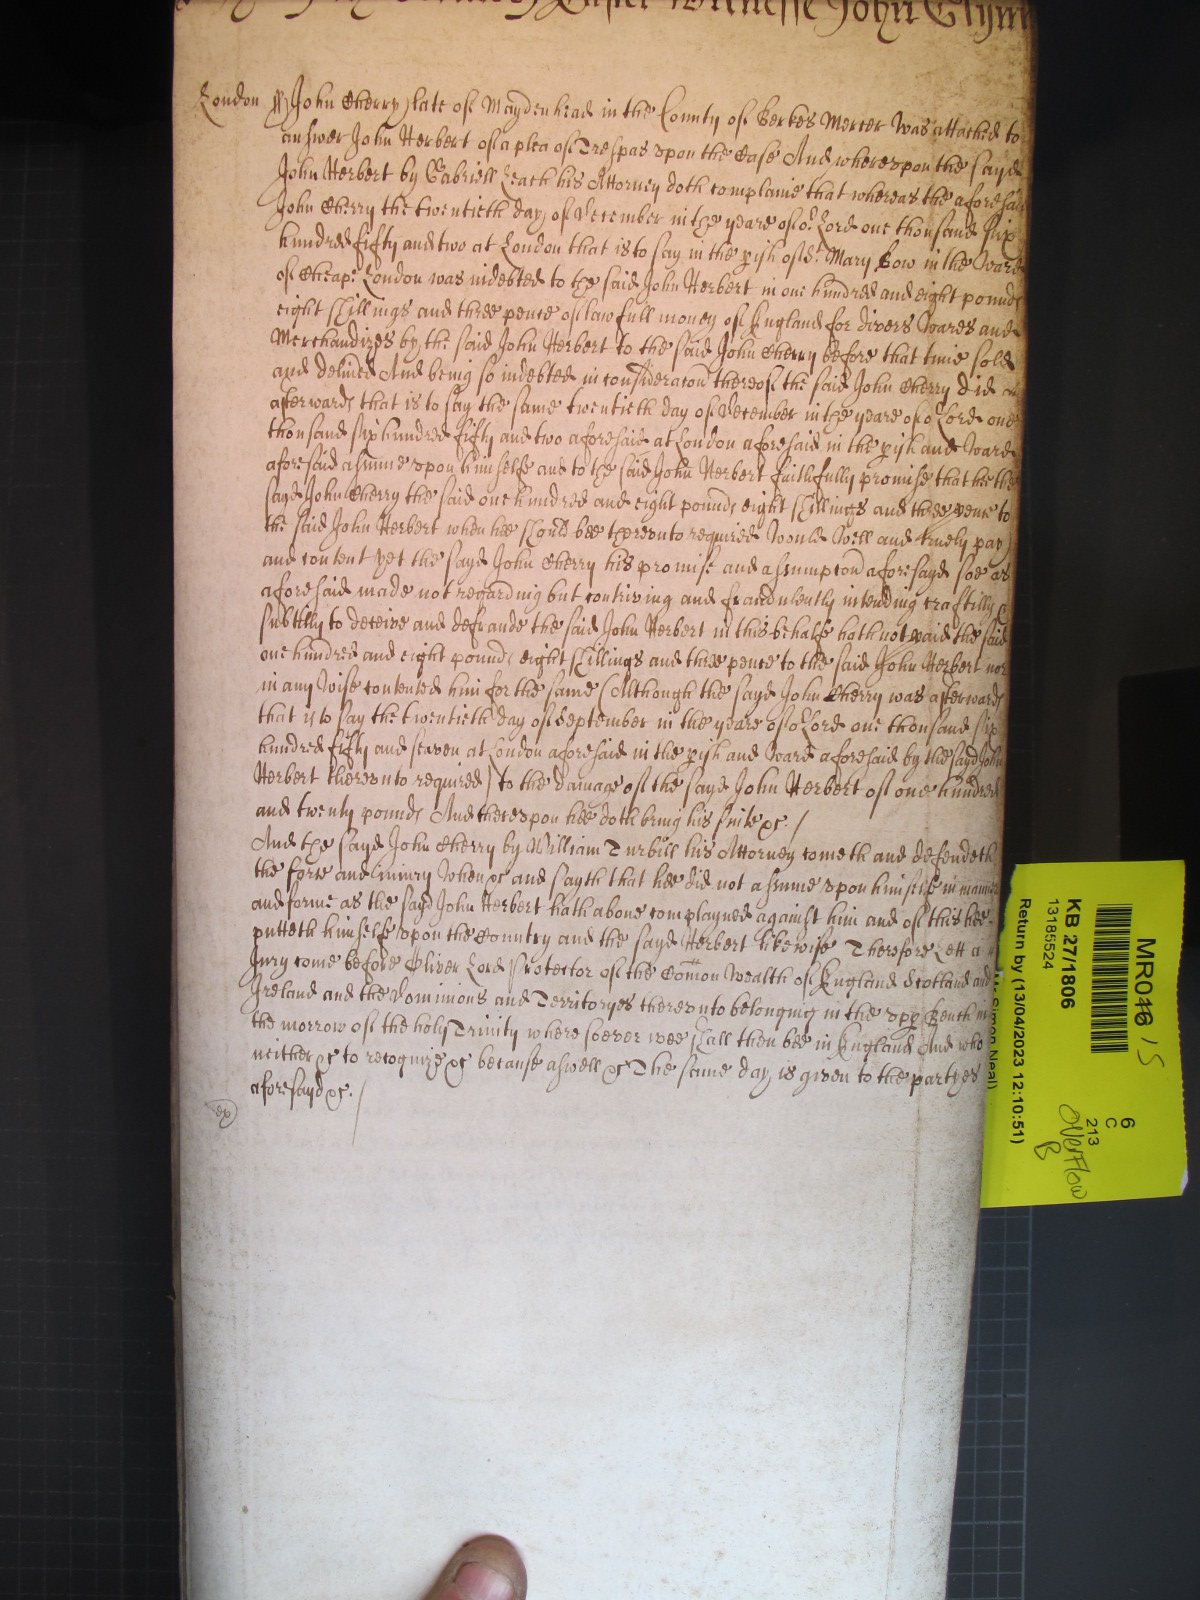 Easter Witnesse John Glynn
London ss John Cherry late of Maydenhead in the County of Berkes Mercer was attached to
answer John Herbert of a plea of Trespas upon the Case And whereupon the sayd
John Herbert by Gabriell Leach his Attorney doth complaine that whereas the aforesaid
John Cherry the twentieth day of December in the yeare of or Lord one thousand six
hundred fifty and two at London that is to say in the pish of St Mary Bow in the Ward
of Cheape London was indebted to the said John Herbert in one hundred and eight pounds
eight shillings and three pence of lawfull money of England for divers Wares and
Merchandizes by the said John Herbert to the said John Cherry before that time sold
and delived And being so indebted in consideracon thereof the said John Cherry did
afterwards that is to say the same twentieth day of December in the yeare of or Lord one
thousand six hundred fifty and two aforesaid at London aforesaid in the pish and Ward
aforesaid assume upon himselfe and to the said John Herbert faithfully promise that he the
sayd John Cherry the said one hundred and eight pounds eight shillings and three pence to
the said John Herbert when hee should bee thereunto required Would Well and truely pay
and content yet the sayd John Cherry his promise and assumpcon aforesayd soe as
aforesaid made not regarding but contriving and fraudulently intending craftilly &
subtilly to deceive and defraude the said John Herbert in this behalfe hath not paid the said
one hundred and eight pounds eight shillings and three pence to the said John Herbert nor
in any Wise contented him for the same (Although the sayd John Cherry was afterwards
that is to say the twentieth day of September in the yeare of or Lord one thousand six
hundred fifty and seaven at London aforesaid in the pish and Ward aforesaid by the sayd John
Herbert thereunto required) to the damage of the sayd John Herbert of one hundred
and twenty pounds And thereupon hee doth bring his suite &c. /
And the sayd John Cherry by William Turbill his Attorney cometh and defendeth
the force and iniury When &c and sayth that hee did not assume upon himselfe in manner
and forme as the sayd John Herbert hath above complayned against him and of this hee
putteth himselfe upon the Country and the sayd Herbert likewise Therefore Lett a
Jury come before Oliver Lord Protector of the Comon Wealth of England Scotland and
Ireland and the Dominions and Territoryes thereunto belonging in the upp Bench in
the morrow of the holy Trinity where soever wee shall then bee in England And who
neither &c to recognize &c because aswell &c The same day is given to the partyes
aforesayd &c. /
ex
MR046 15
KB 27/1806
13185524
Return by (13/04/2023 12:10:51)
6
C
213
Overflow
B